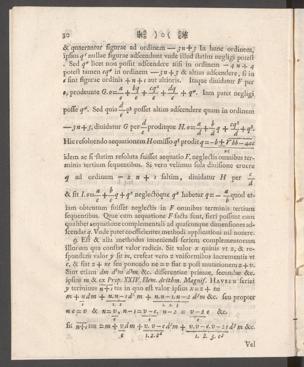 30
& generantur figuræ ad ordinem — 3n+3 In hunc ordinem,
ipsum q² nullæ figuræ adscendunt unde illud statim negligi potest
. Sed q³ licet non possit adscendere nisi in ordinem — 4n+4
potest tamen cq³ in ordinem — 3n+3 & altius adscendere, si in
c sint figuræ ordinis + n + 1 aut altioris. Itaque dividatur F per
e, prodeunte G. o = a/e + bq/e + cq²/e + dq³/e + q⁴. Jam patet negligi
posse q⁴. Sed quio d/e q³ posset altius adscendere quam in ordinem
— 3n+3, dividatur G per d/e proditque H. o = a/d + b/d q + cq²/d + q³.
Hic resolvendo æquationem Homisso q³ prodit q = -b+√bb-4ac
idem ac si statim resoluta fuisset æquatio F, neglectis omnibus ter-
minis tertium sequentibus. Si vera velimus sola divisione eruere
q ad ordinem — 2n + 1 saltim, dividatur H per c/d
& sit I. o = a/c + b/c q + q² neglectoque q² habetur q = — a/b quod et-
iam obtentum fuisset neglectis in F omnibus terminis secundum
sequentibus. Quæ cum æquatione F facta sunt, fieri possunt cum
qualibet æquatione complementali ad quascunque dimensiones ad-
scendat q. Unde patet coefficientes methodi applicationi nil nocere.
9. Est & alia methodus inveniendi seriem complementorum
illorum quæ constet valor radicis. Sit valor x quinus st z, & re-
spondens valor y sit n, crescat vero z uniformibus incrementis
c, & fiat z + ne seu ponendo nc = v fiat z post n
Sint etiam dm d²m d³m &c. differentiæ primæ, secundæ &c.
ipsius m & ex Prop. XXIV. Elem. Arithm. Magnif. HAUSEN fueri
y terminus n+1us in quo est valor ipsius x = z + nc
m + n dm + n.n-1 d²m + n.n-1.n-2 d³m &c. seu propter
nc = v & n = v, n-1 = v-c, n-2 = v-2c &c.
fit n+1us = m + v dm + v.v-c d²m + v.v-c.v-2c d³m &c.
Vel